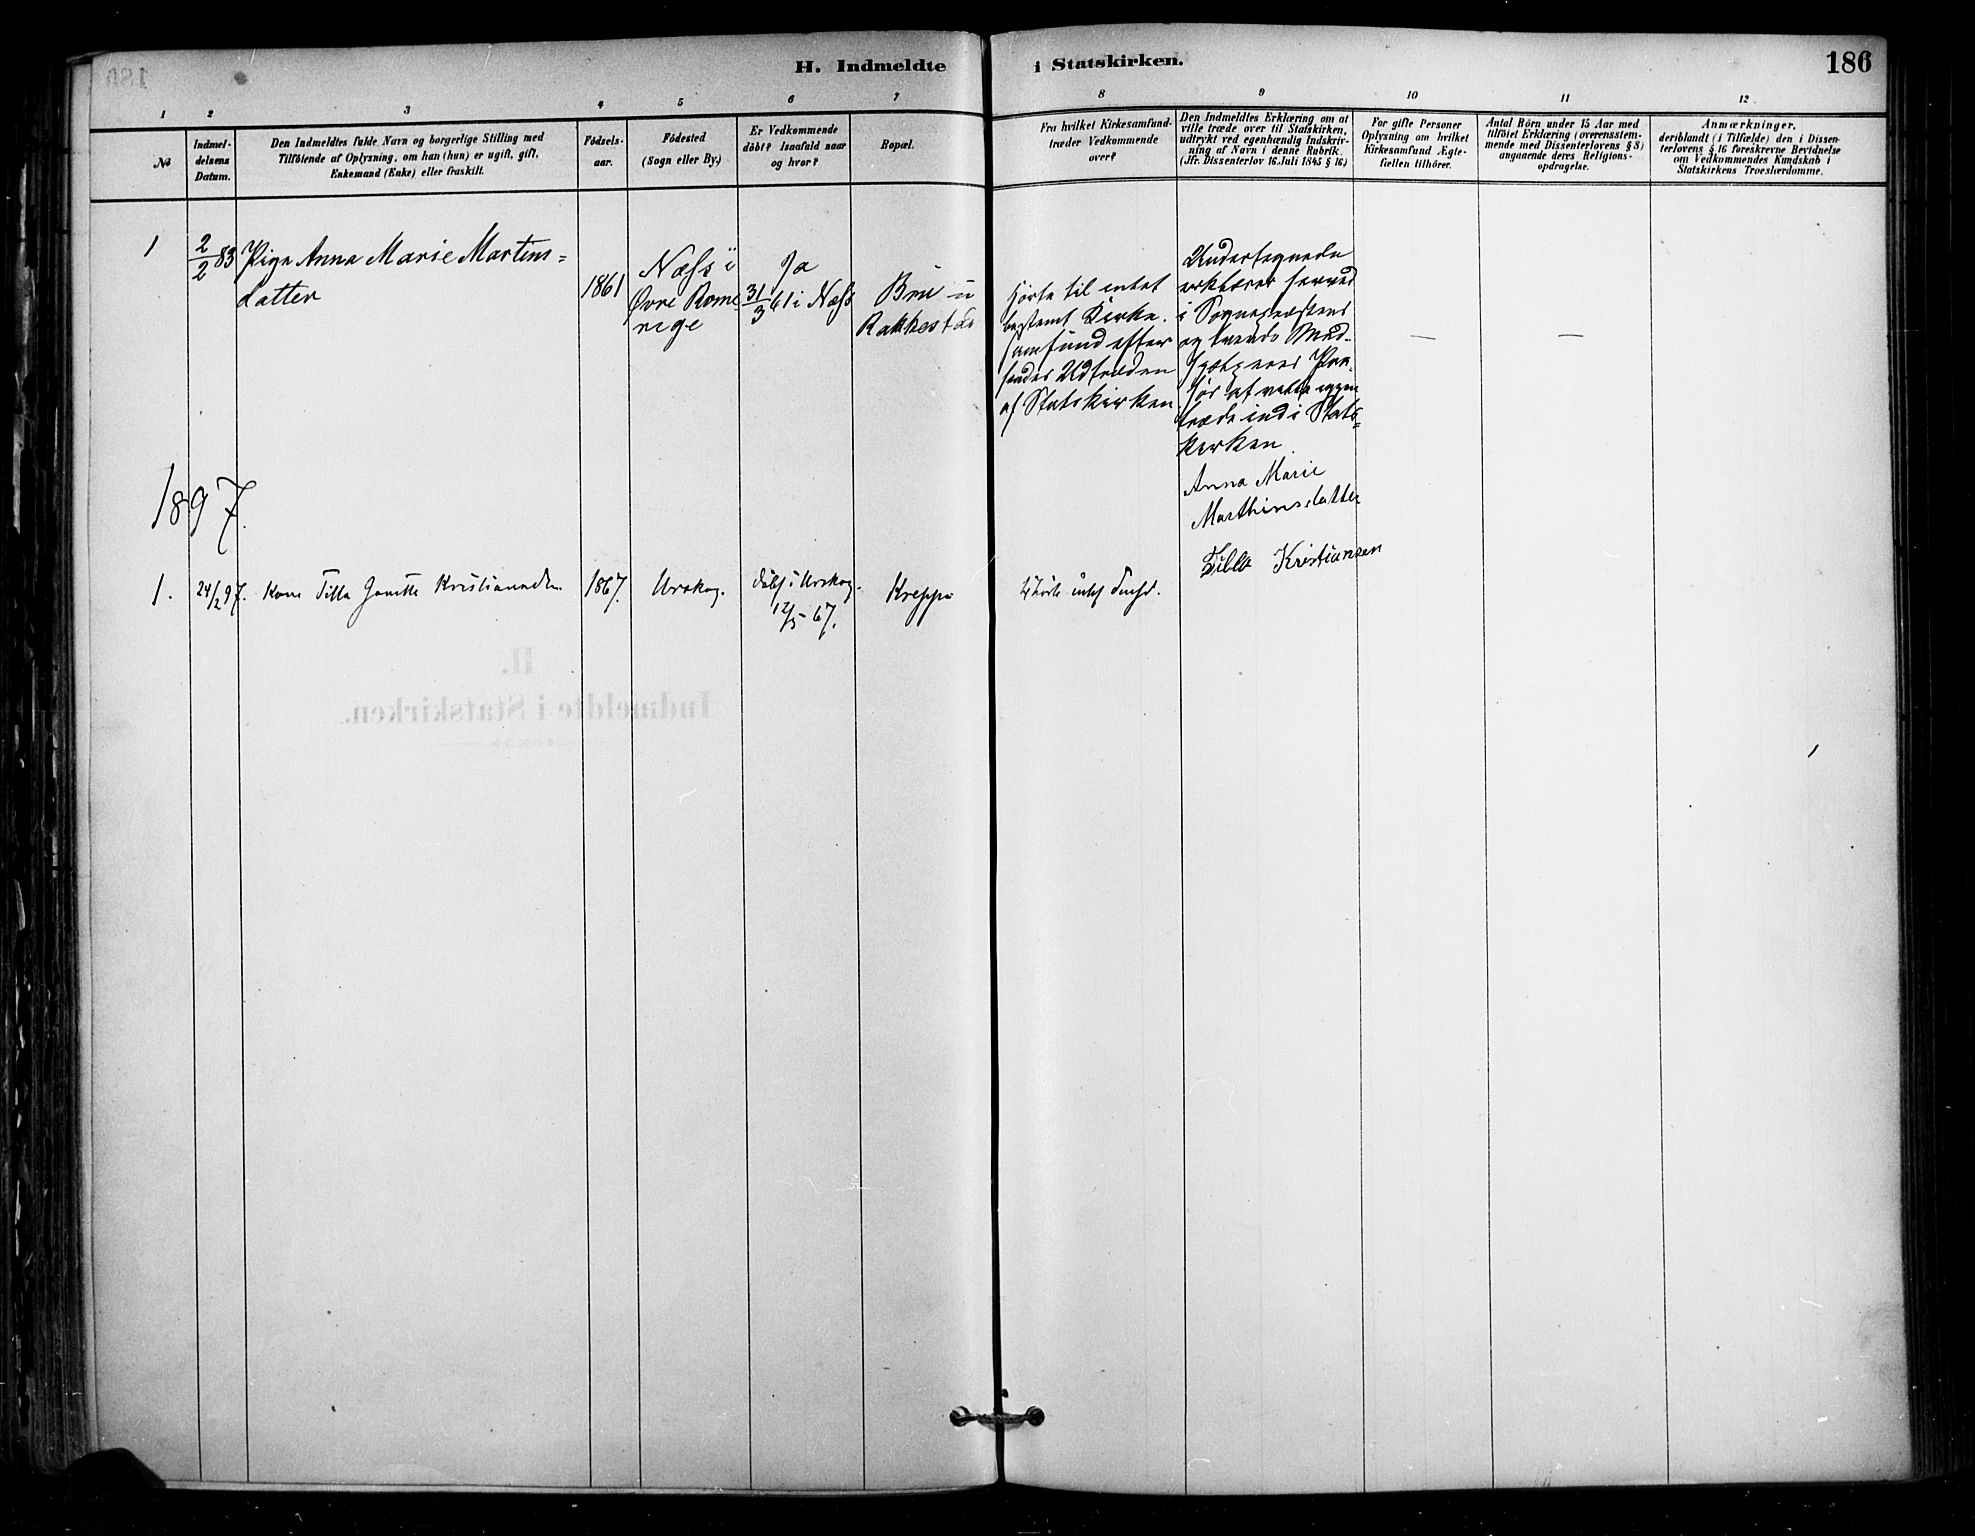 H. Indmeldte i Statskirken.
186
1 2 3 4 5 6 7 8 9 10 11 12
No
Indmel-
delsens
Datum.
Den Indmeldtes fulde Navn og borgerlige Stilling med
Tilføiende af Oplysning, om han (hun) er ugift, gift,
Enkemand (Enke) eller fraskilt.
Fødsels-
aar.
Fødested
(Sogn eller By.)
Er Vedkommende
døbt? Isaafald naar
og hvor?
Bopæl.
Fra hvilket Kirkesamfund
træder Vedkommende
over?
Den Indmeldtes Erklæring om at
ville træde over til Statskirken,
udtrykt ved egenhændig Indskriv-
ning af Navn i denne Rubrik.
(Jfr. Dissenterlov 16. Juli 1845 § 16)
For gifte Personer
Oplysning om hvilket
Kirkesamfund Ægte-
fællen tilhører.
Antal Börn under 15 Aar med
tilföiet Erklæring (overensstem-
mende med Dissenterlovens § 8)
angaaende deres Religions-
opdragelse.
Anmærkninger,
deriblandt (i Tilfælde) den i Dissen-
terlovens § 16 foreskrevne Bevidnelse
om Vedkommendes Kundskab i
Statskirkens Troeslærdomme.
1
2/2 83
Pige Anna Marie Martins=
datter
1861
Næss i
Øvre Rome
rige
Ja
31/3 61 i Næss
Bru i
Rakkestad
hörte til intet
bestemt Kirke-
samfund efter
hendes Udtræden
af Statskirken
Undertegnede
erklærer herved
i Sognepræstens
og tvende Med-
hjælperes Paa-
hör at ville igjen
træde ind i Stats=
kirken.
Anna Marie
Marthinsdatter
—
—
1897.
1.
24/2 97.
Kone Tilla Kristiansdtr.
1867.
Urskog.
døbt i Urskog.
12/5 67.
Kreppa
Tilhörte intet
Tilla Kristiansen
II.
Indmeldte i Statskirken.